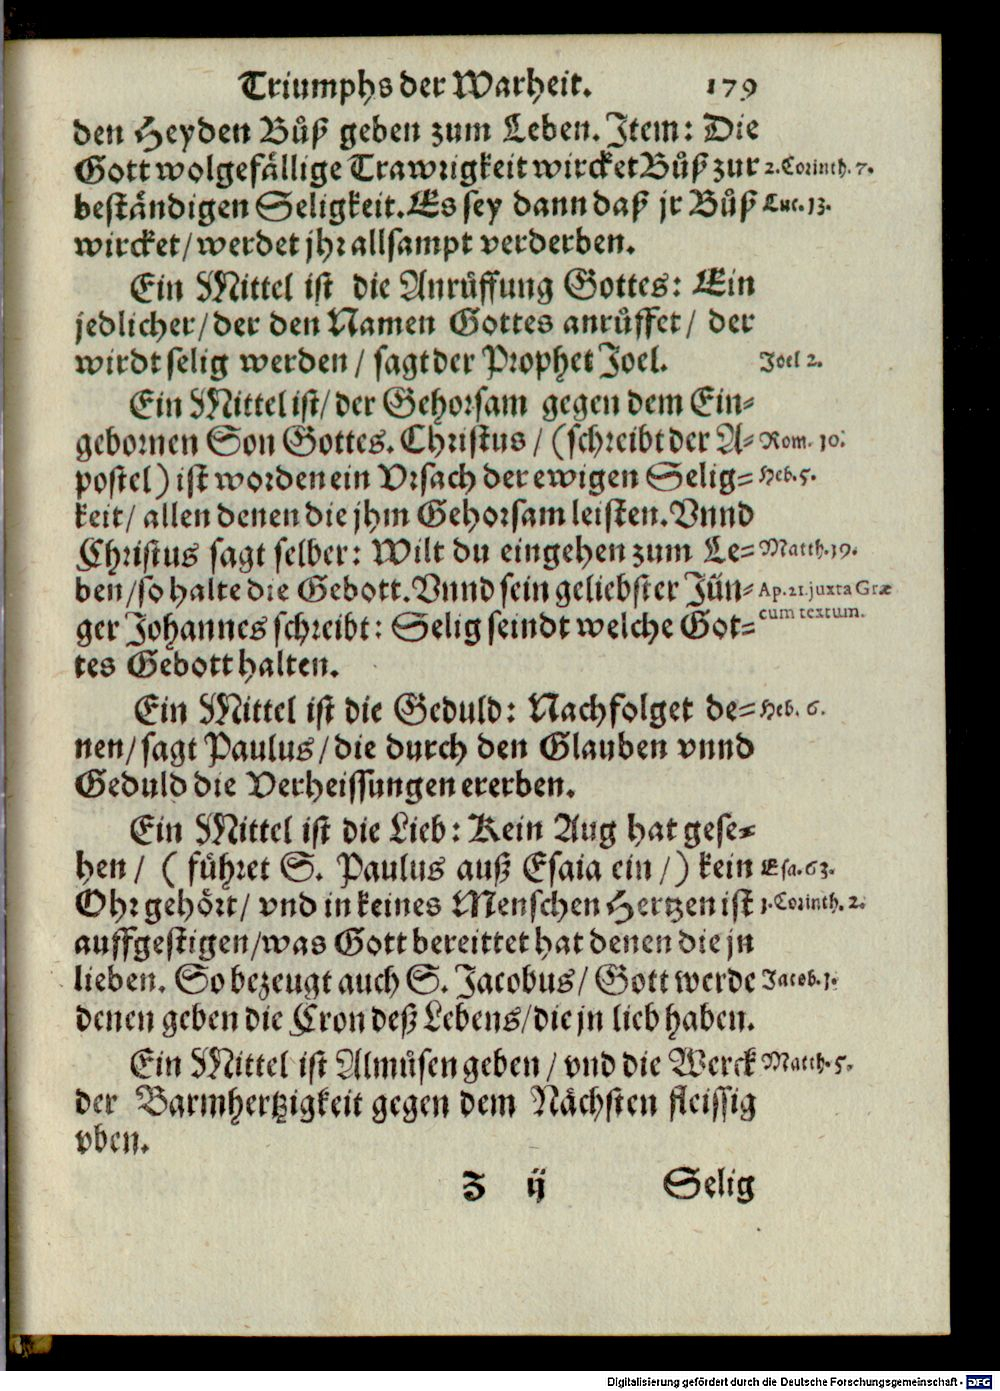 Triumphs der Warheit. 179
den Heyden Bůß geben zum Leben. Item: Die
Gott wolgefällige Trawrigkeit wircket Bůß zur 2. Corinth. 7.
beständigen Seligkeit. Es sey dann daß jr Bůß Luc. 13.
wircket / werdet jhr allsampt verderben.
Ein Mittel ist die Anrůffung Gottes: Ein
jedlicher / der den Namen Gottes anrůffet / der
wirdt selig werden / sagt der Prophet Joel. Joel 2.
Ein Mittel ist / der Gehorsam gegen dem Ein-
gebornen Son Gottes. Christus / (schreibt der A- Rom. 10.
postel) ist worden ein Vrsach der ewigen Selig- Heb. 5.
keit / allen denen die jhm Gehorsam leisten. Vnnd
Christus sagt selber: Wilt du eingehen zum Le- Matth. 19.
ben / so halte die Gebott. Vnnd sein geliebster Jün- Ap. 21. juxta Græ
ger Johannes schreibt: Selig seindt welche Got- cum textum.
tes Gebott halten.
Ein Mittel ist die Geduld: Nachfolget de- Heb. 6.
nen / sagt Paulus / die durch den Glauben vnnd
Geduld die Verheissungen ererben.
Ein Mittel ist die Lieb: Kein Aug hat gese-
hen / ( führet S. Paulus auß Esaia ein /) kein Esa. 63.
Ohr gehört / vnd in keines Menschen Hertzen ist 1. Corinth. 2.
auffgestigen / was Gott bereittet hat denen die jn
lieben. So bezeugt auch S. Jacobus / Gott werde Jacob. 1.
denen geben die Cron deß Lebens / die jn lieb haben.
Ein Mittel ist Almůsen geben / vnd die Werck Matth. 5.
der Barmhertzigkeit gegen dem Nächsten fleissig
vben.
Z ij Selig
Digitalisierung gefördert durch die Deutsche Forschungsgemeinschaft - DFG